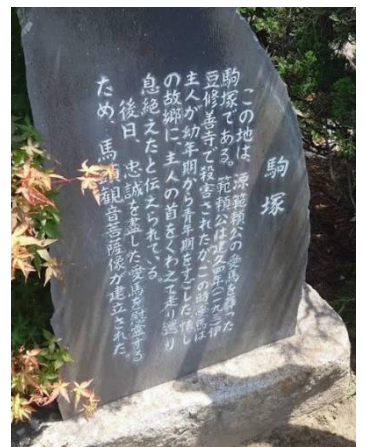 駒塚
この地は、源範頼公の愛馬を葬った
駒塚である。範頼公は建久四年(一一九三)伊
豆修善寺で殺害されたが、この時愛馬は
主人が幼年期から青年期をすごした懐し
の故郷に、主人の首をくわえて走り巡り
息絶えたと伝えられている。
後日、忠誠を盡した愛馬を慰霊する
ため、馬頭観音菩薩像が建立された。